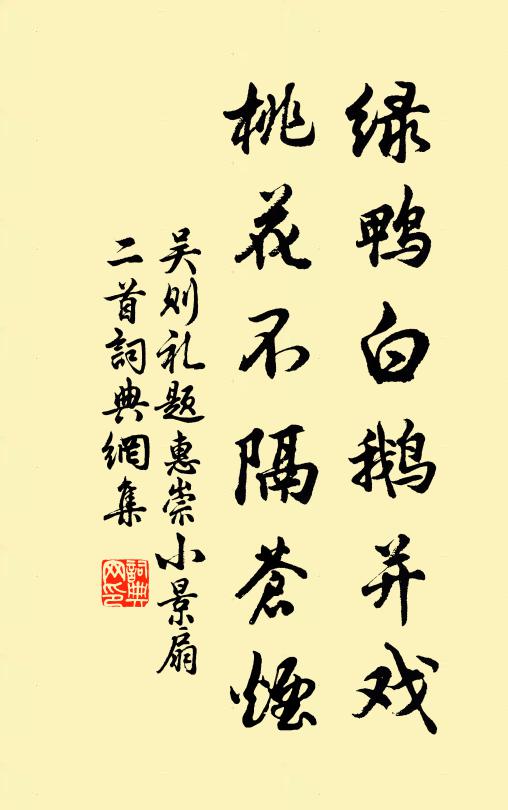 绿鸭白鹅并戏
桃花不隔苍烟
吴则礼题惠崇小景扇
二首詞典網集
詞典网印